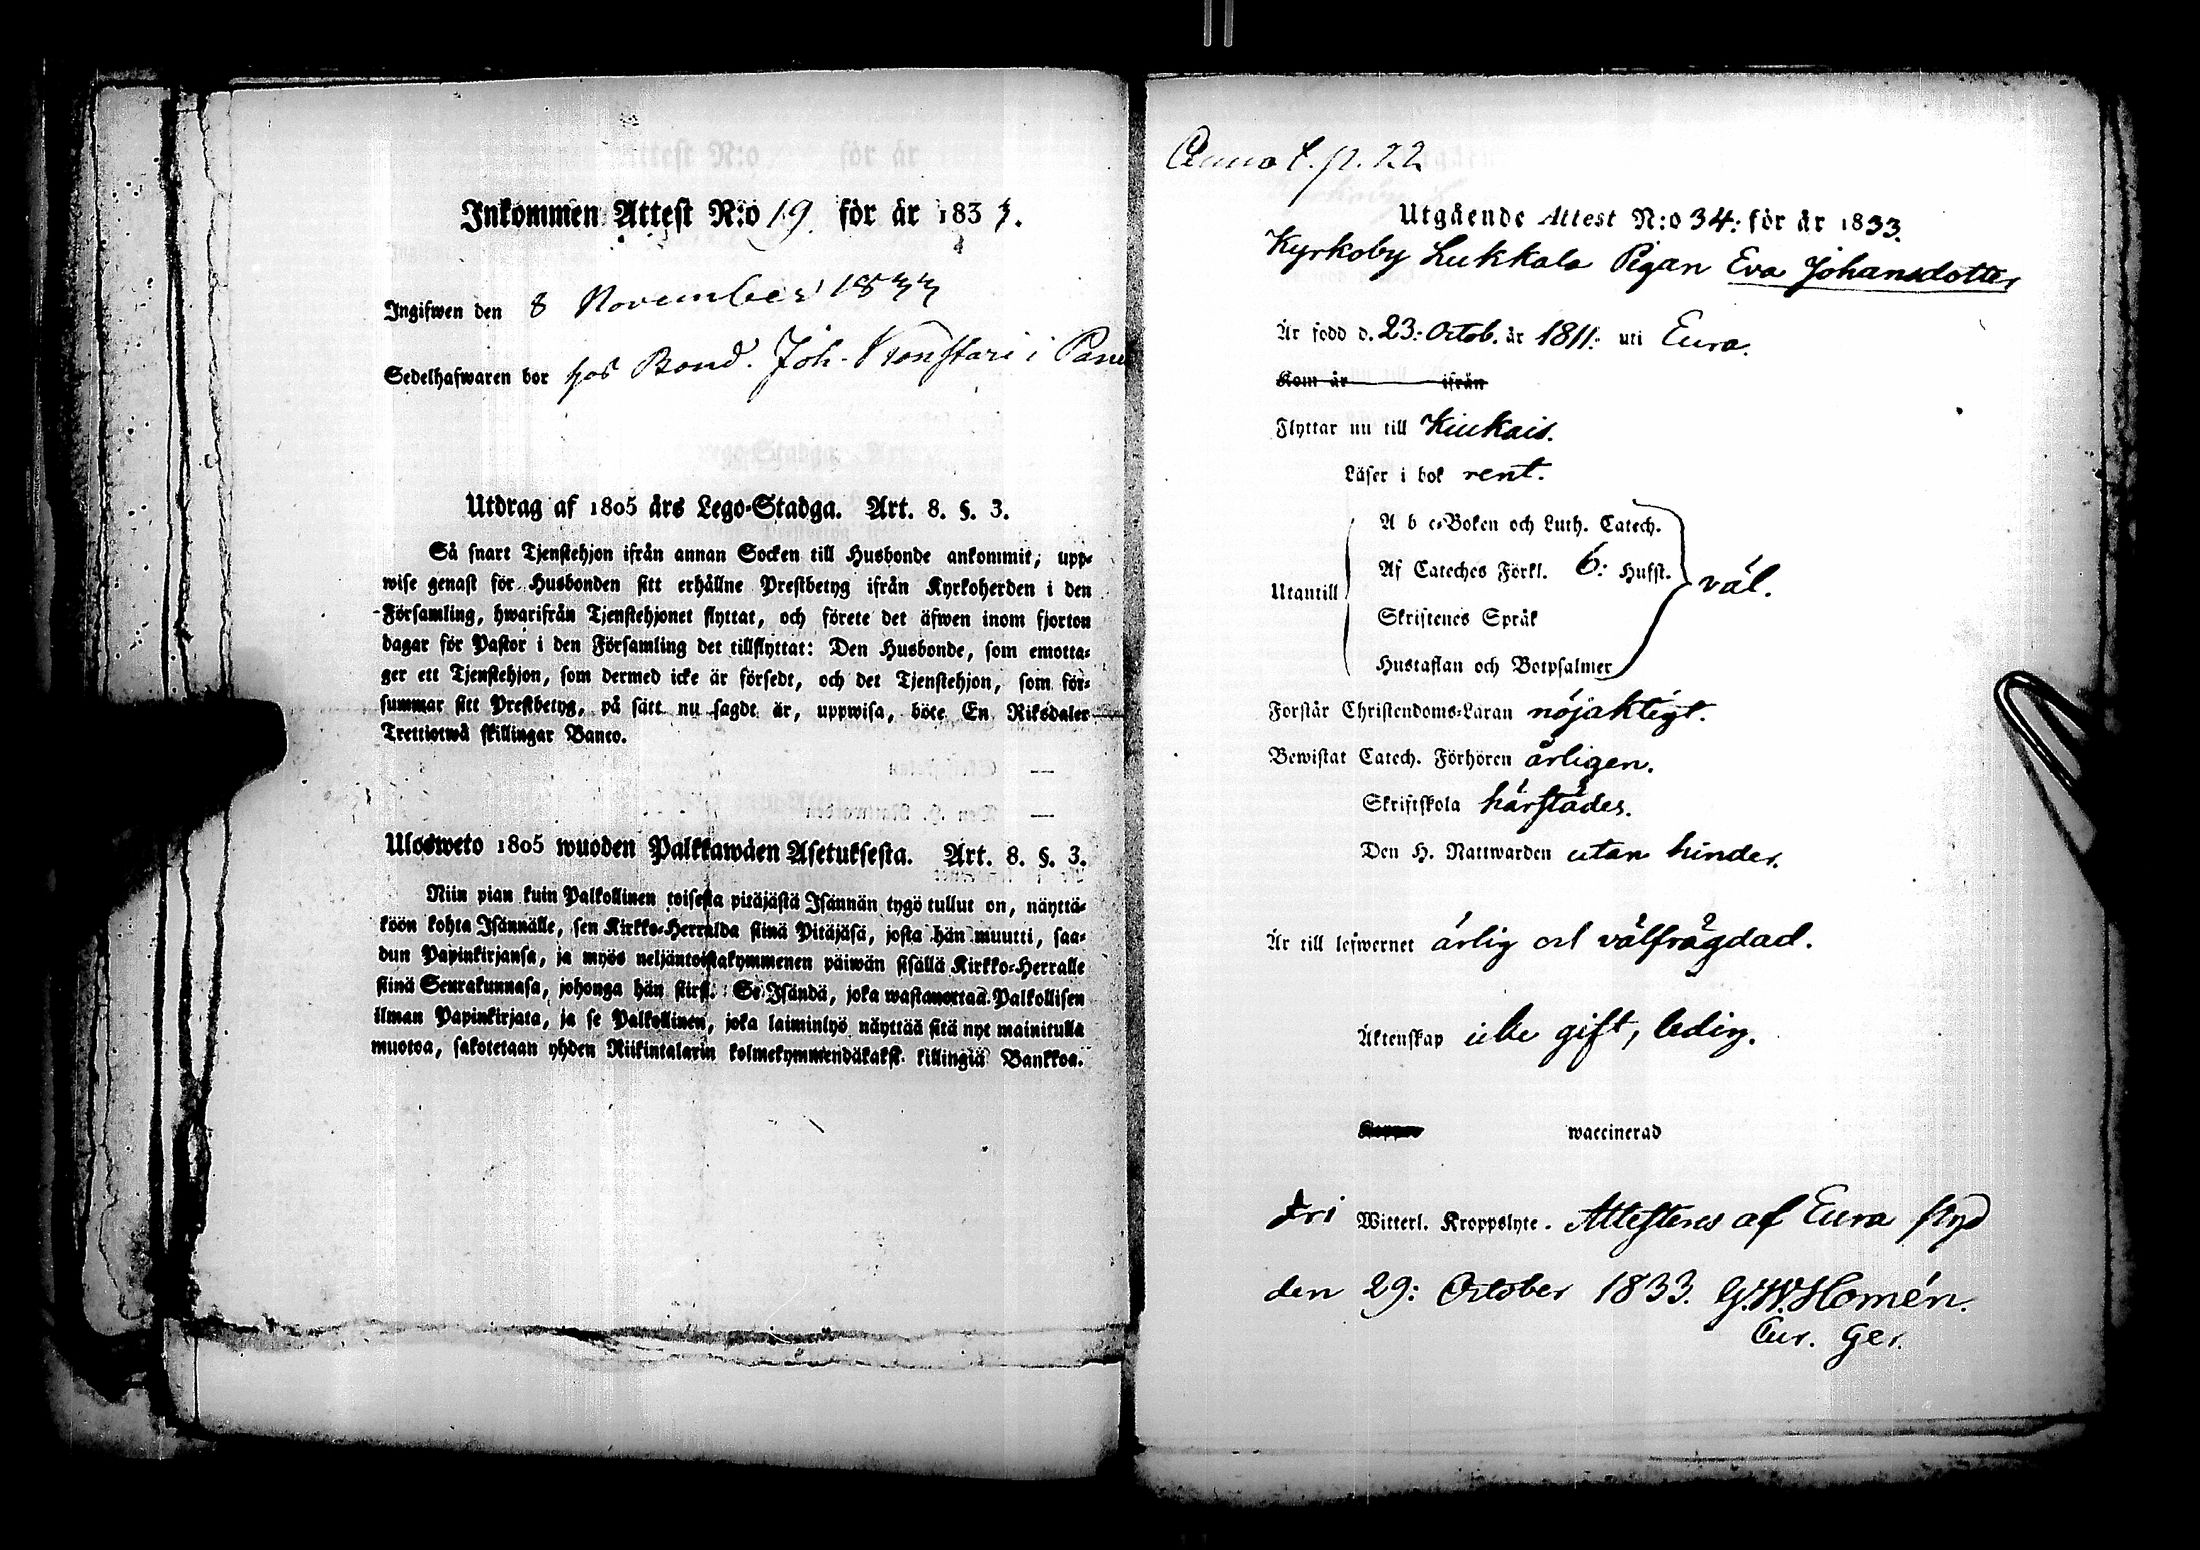 Inkommen Attest N:o 19 för år 1833.
Ingifwen den 8 November 1833
Sedelhafwaren bor hos Bond. Joh.  i
Utdrag af 1805 års Lego-Stadga. Art. 8. §. 3.
Så snart Tjenstehjon ifrån annan Socken till Husbonde ankommit, upp-
wise genast för Husbonden sitt erhållne Prestbetyg ifrån Kyrkoherden i den
Församling, hwarifrån Tjenstehjonet flyttat, och förete det äfwen inom fjorton
dagar för Pastor i den Församling det tillflyttat: Den Husbonde, som emotta-
ger ett Tjenstehjon, som dermed icke är försedt, och det Tjenstehjon, som för-
summar sitt Prestbetyg, på sätt nu sagdt är, uppwisa, böte En Riksdaler
Trettiotwå skillingar Banco.
Ulosweto 1805 wuoden Palkkawäen Asetuksesta. Art. 8. §. 3.
Niin pian kuin Palkollinen toisesta pitäjästä Isännän tygö tullut on, näyttä-
köön kohta Isännälle, sen Kirkko-Herralda siinä Pitäjäsä, josta hän muutti, saa-
dun Papinkirjansa, ja myös neljäntoistakymmenen päiwän sisällä Kirkko-Herralle
siinä Seurakunnasa, johonga hän siirsi. Se Isändä, joka wastanottaa Palkollisen
ilman Papinkirjata, ja se Palkollinen, joka laiminlyö näyttää sitä nyt mainitulla
muotoa, sakotetaan yhden Riikintalarin kolmekymmendäkaksi killingiä Bankkoa.
Anno t. p. 22
Utgående Attest N:o 34: för år 1833.
Kyrkoby Lukkala Pigan Eva Johansdotter
Är född d. 23: Octob. år 1811: uti Eura.
Kom år ifrån
Flyttar nu till Kiukais.
Läser i bok rent.
A b c-Boken och Luth. Catech.
Af Cateches Förkl. 6: Hufst.
Utantill väl.
Skriftenes Språk
Hustaflan och Botpsalmer
Förstår Christendoms-Läran nöjaktigt.
Bewistat Catech. Förhören årligen.
Skriftskola härstädes.
Den H. Nattwarden utan hinder.
Är till lefwernet ärlig och välfrägdad.
Äktenskap icke gift, ledig.
waccinerad
Fri Witterl. Kroppslyte. Attesteras af Eura
den 29: October 1833. G.W. Homén.
Cur. Ger.